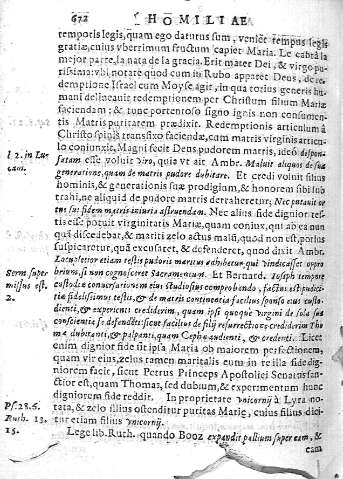 672 HOMILIAE
temporis legis, quam ego daturus sum, veniet tempus legis
gratiæ, cuius vberrimum fructum capiet Maria. Le cabrà la
mejor parte, la nata de la gracia. Erit mater Dei, & virgo pu-
rissima: vbi notate quod cum in Rubo apparet Deus, de re-
demptione Israel cum Moyse agit, in qua totius generis hu-
mani delineauit redemptionem per Christum filium Mariæ
faciendam; & tunc portentoso signo ignis non consumen-
tis Matris puritatem prædixit. Redemptionis articulum à
Christo spinis transfixo faciendæ, cum matris virginis articu-
lo coniunxit, Magni fecit Deus pudorem matris, ideò despon-
l 2. in Lu- satam esse voluit viro, quia vt ait Ambr. Maluit aliquos de sua
cam. generatione, quam de matris pudore dubitare. Et credi voluit filius
hominis, & generationis suæ prodigium, & honorem sibi sub
trahi, ne aliquid de pudore matris derraheretur; Nec putauit or
tus sui fidem matris iniuria astruendam. Nec alius fide dignior tes-
tis esse potuit virginitatis Mariæ, quam coniux, qui ab ea nun
qua discedebat, & mariti zelo actus malū, quod non est, potius
suspicaretur, quā excusaret, & defenderet, quod dixit Ambr.
Locupletior etiam testis pudoris maritus adhibetur, qui vindicasset oppro
Serm super brium, si non cognosceret Sacramentum. Et Bernard. Ioseph tempore
missus est. custodiæ conuersationem eius studiosius comprobando, factus est pudici-
2. tiæ fidelissimus testis, & de matris continentia facilius sponso eius custo-
dienti, & experienti crediderim, quam ipsi quoque virgini de sola sua
conscientia se defendēti: sicut facilius de filij resurrectione crediderim Tho
mæ dubitanti, & palpanti, quam Cephæ audienti, & credenti. Licet
enim dignior fide sit ipsa Maria ob maiorem perfectionem,
quam vir eius, zelus tamen maritalis cum in re illa fide dig-
niorem facit, sicut Petrus Princeps Apostolici Senatus san-
ctior est, quam Thomas, sed dubium, & experimentum hunc
digniorem fide reddit. In proprietate vnicornij à Lyra no-
Ps. 28. 6. tata, & zelo illius ostenditur puritas Mariæ, cuius filius dici-
Ruth. 13. tur etiam filius vnicornij.
15. Lege lib. Ruth. quando Booz expandit pallium super eam, &
eam